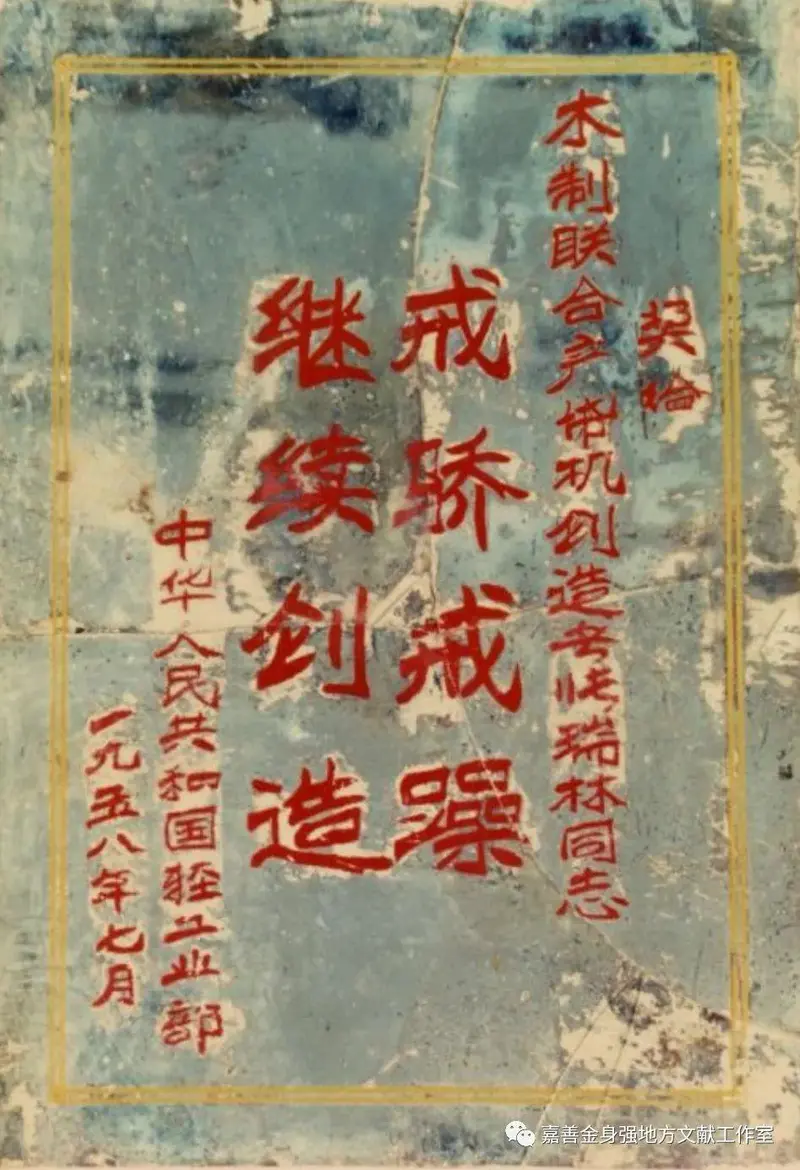 奖给
木制联合产机创造者张瑞林同志
戒骄戒躁
继续创造
中华人民共和国轻工业部
一九五八年七月
嘉善金身强地方文献工作室